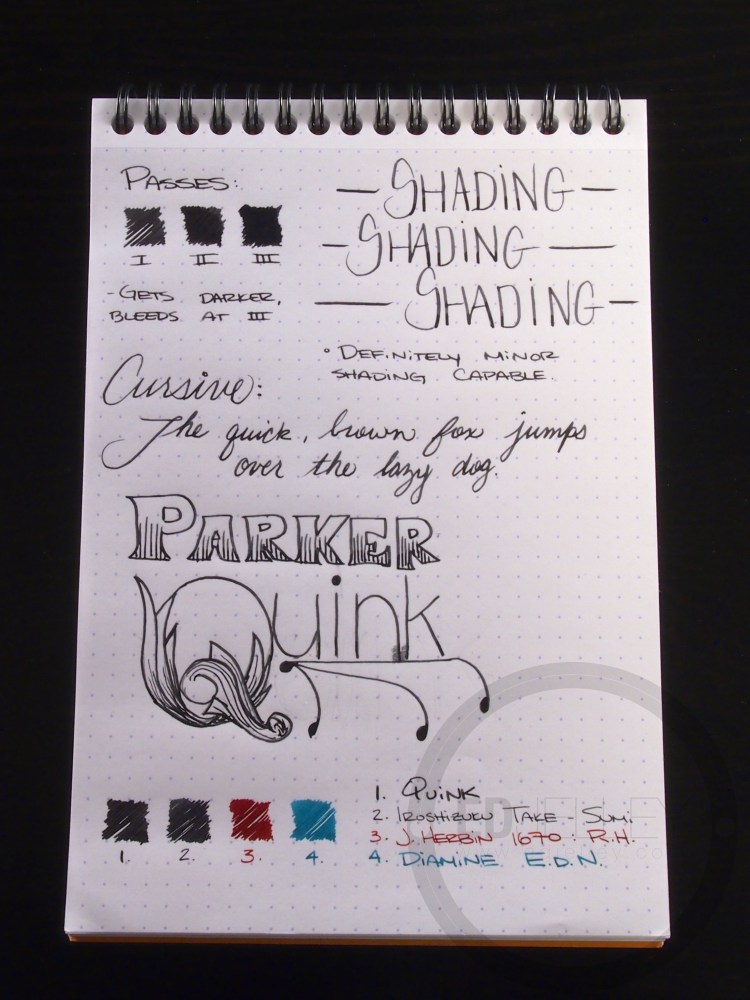 PASSES:
I II III
- GETS DARKER,
BLEEDS AT III
— SHADING —
— SHADING —
— SHADING —
° DEFINITELY MINOR
SHADING CAPABLE.
Cursive:
The quick, brown fox jumps
over the lazy dog.
PARKER
Quink
1. 2. 3. 4.
1. QUINK
2. IROSHIZUKU TAKE - SUMI
3 J. HERBIN 1670 : R.H.
4. DIAMINE E.D.N.